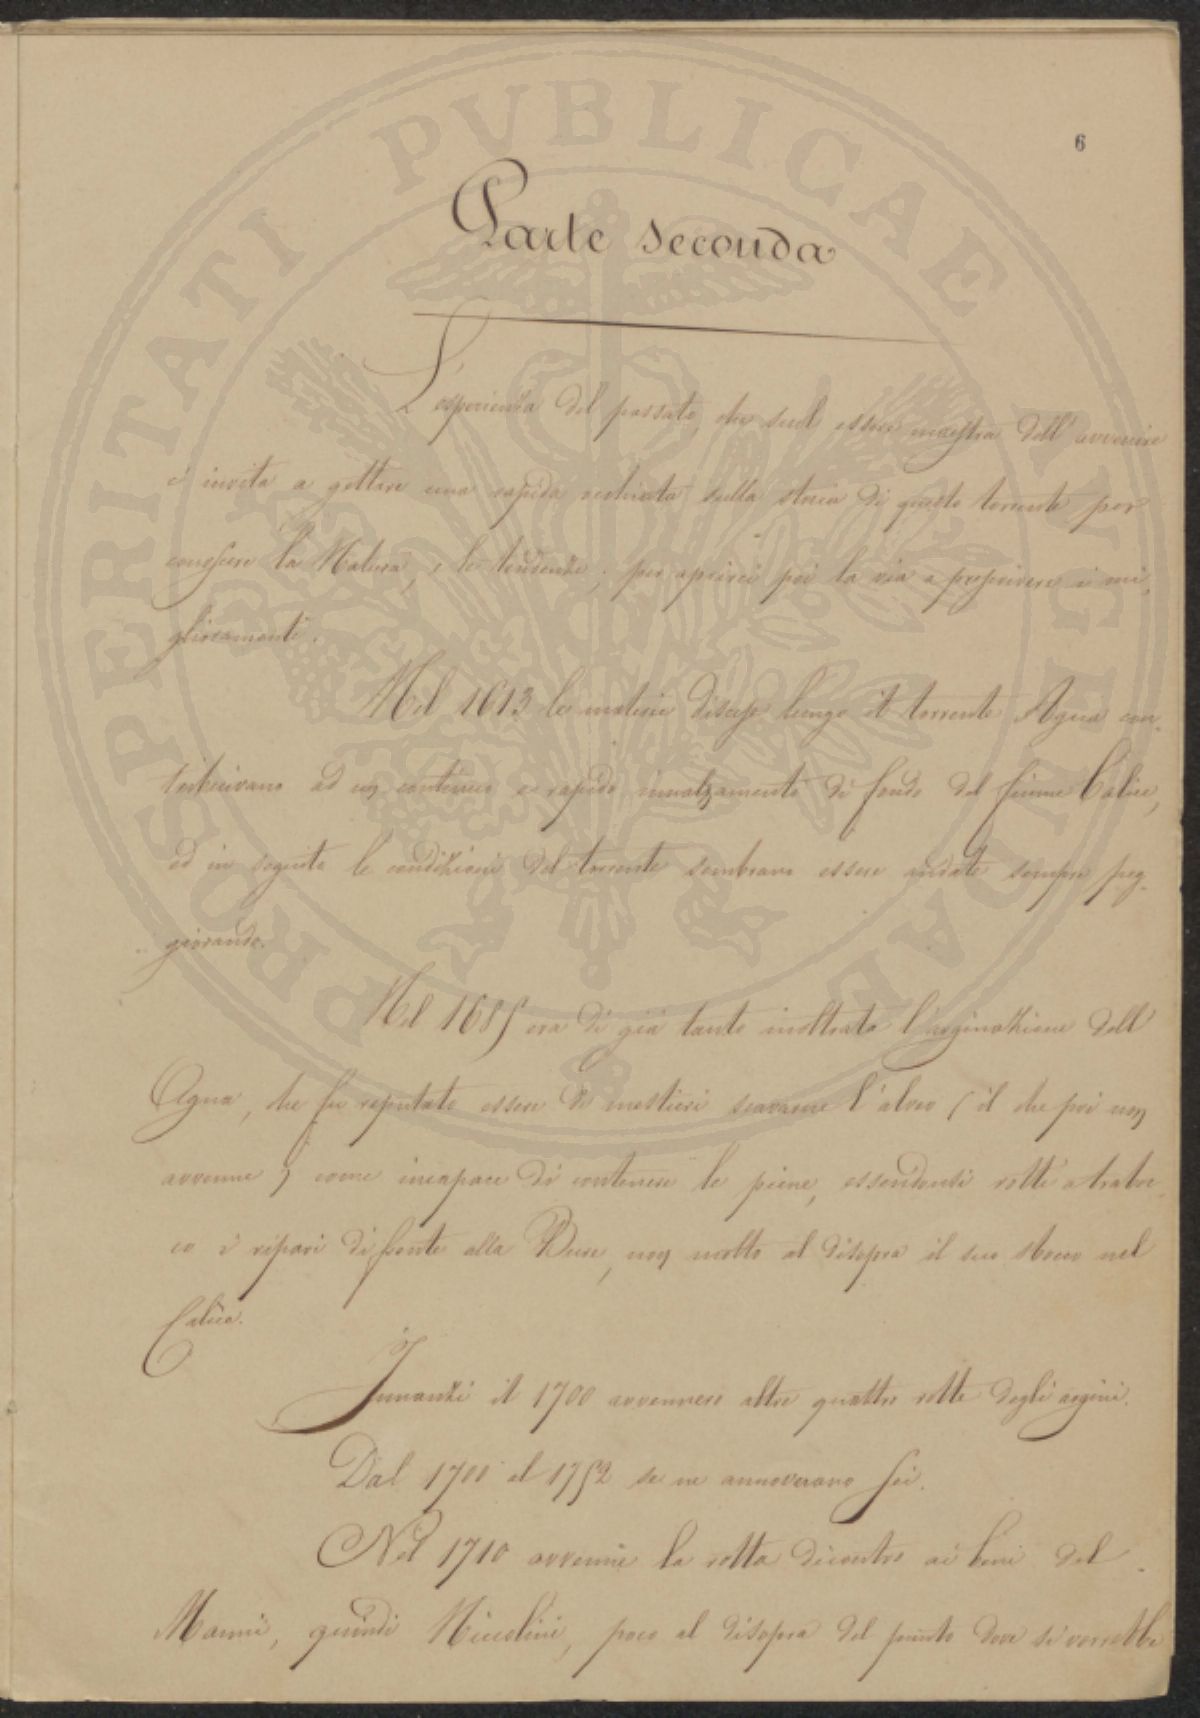 PROSPERITATI PVBLICAE AVGENDAE
6
Parte seconda
L'esperienza del passato, che suol essere maestra dell'avvenire
c'invita a gettare una rapida occhiata sulla storia di questo torrente per
conoscere la Natura, e le tendenze, per aprirci poi la via a prescrivere i mi,
glioramenti.
Nel 1613 le materie discese lungo il torrente Agna con,
tribuivano ad un continuo e rapido innalzamento di fondo del fiume Calice,
ed in seguito le condizioni del torrente sembrano essere andate sempre peg,
giorando.
Nel 1685 era di già tanto inoltrata l'arginazione dell'
Agna, che fu reputato essere di mestieri scavarne l'alveo (il che poi non
avvenne) come incapace di contenere le piene, essendosi rotti a traboc,
co i ripari di fronte alla Bure, non molto al disopra il suo sbocco nel
Calice.
Innanzi il 1700 avvennero altre quattro rotte degli argini.
Dal 1700 al 1752 se ne annoverano sei.
Nel 1710 avvenne la rotta dicontro ai beni del
Manni, quindi Niccolini, poco al disopra del punto dove si vorrebbe